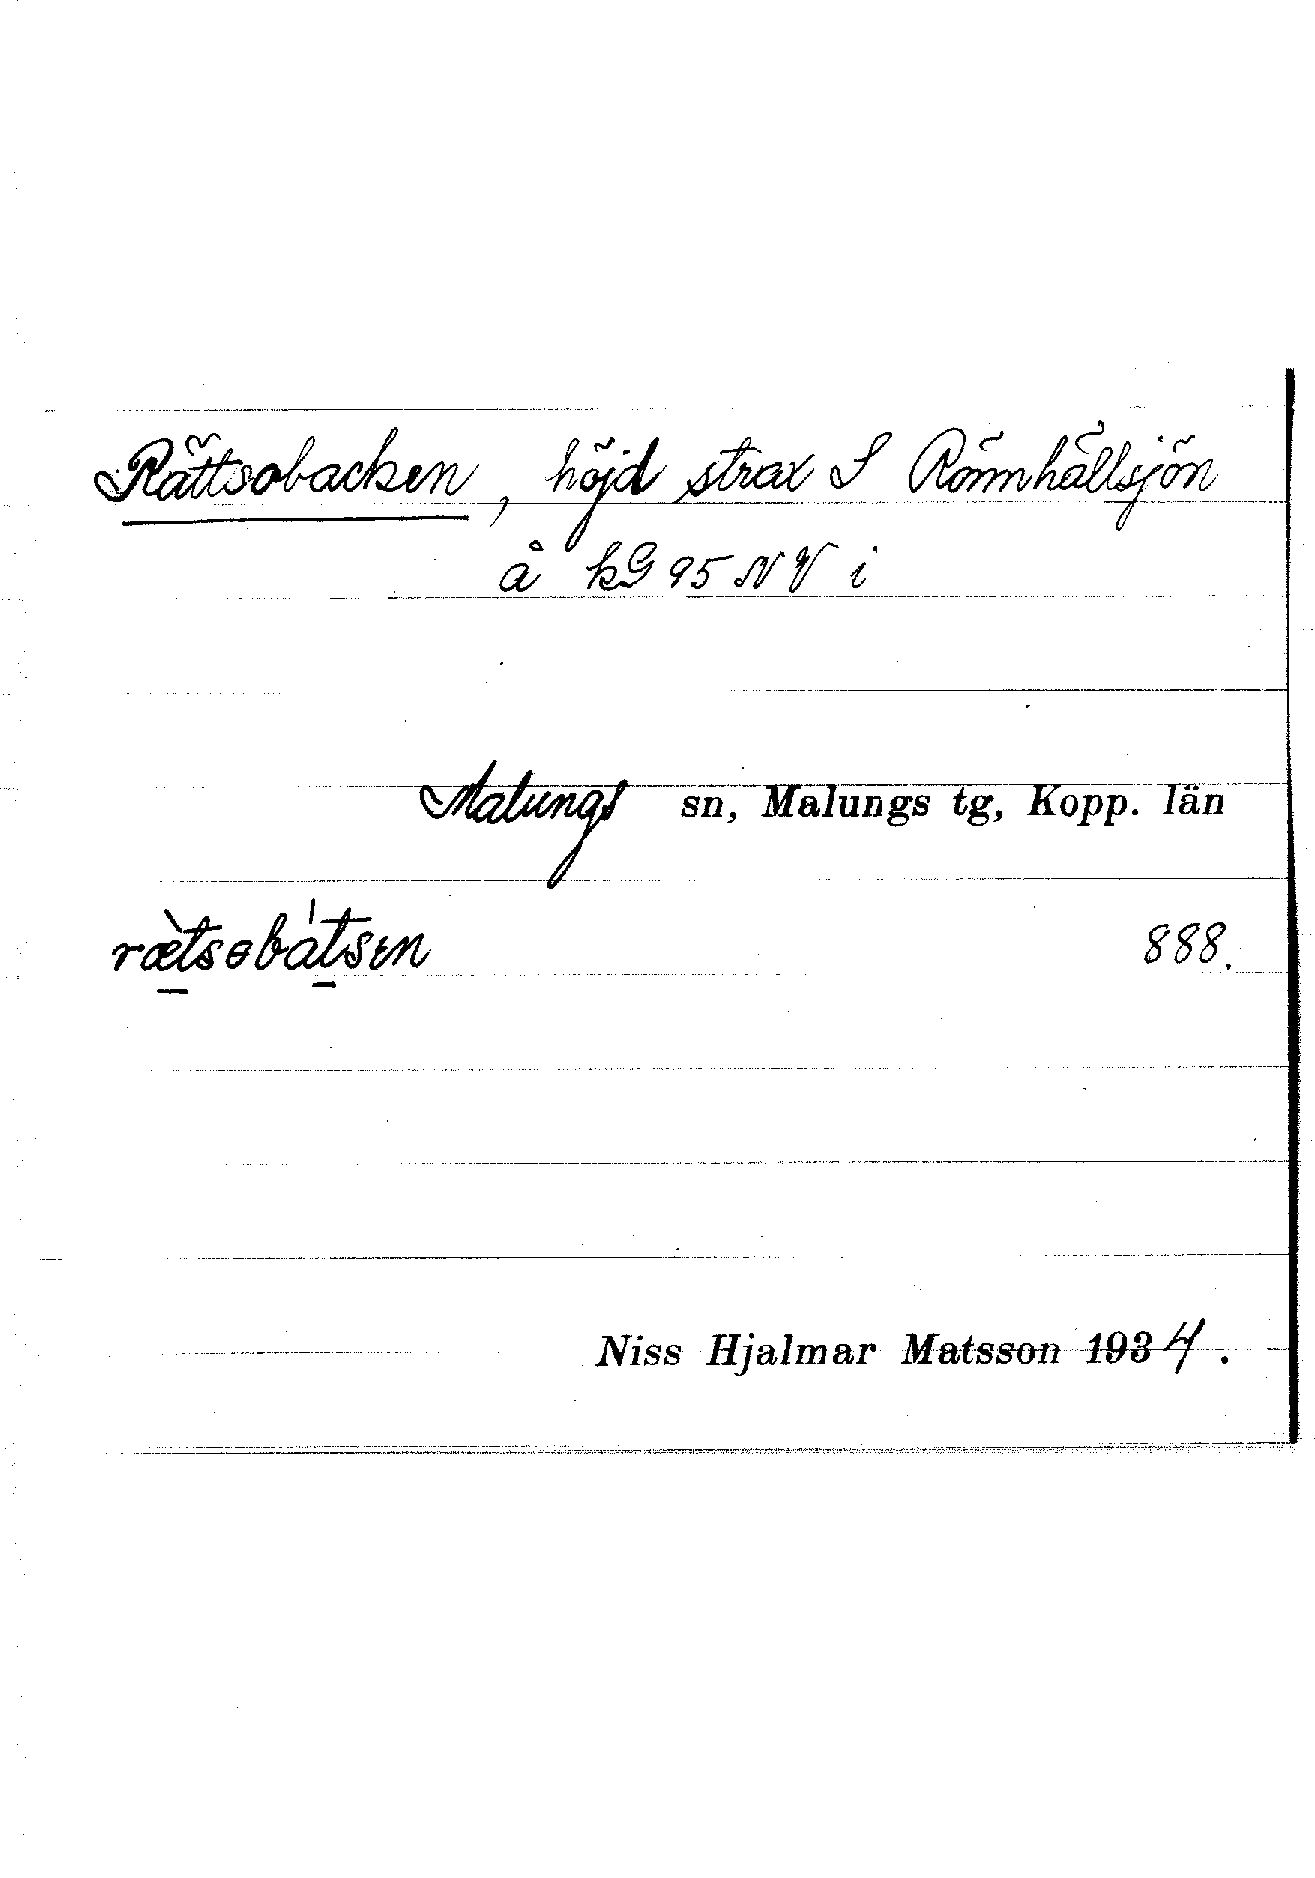 Rättsobacken, höjd strax S Rönnhällsjön
å kG 95 NV i
Malungs sn, Malungs tg, Kopp. län
rætsɵbatsen 888.
Niss Hjalmar Matsson 1934.